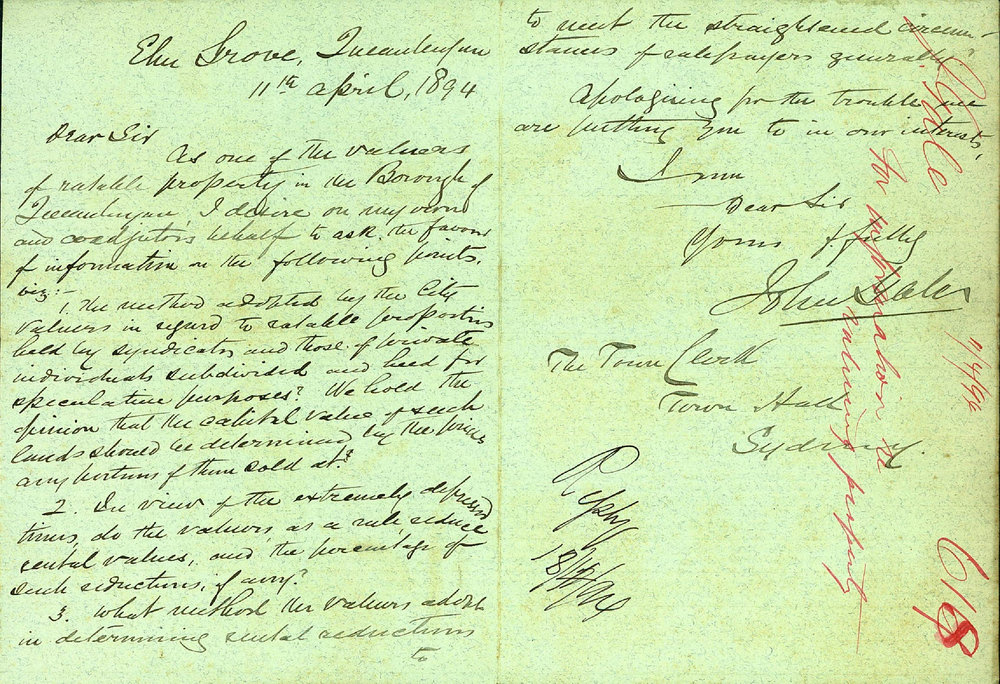 Elm Grove, Queanbeyan
11th April, 1894
Dear Sir
As one of the valuers
of ratable property in the Borough of
Queanbeyan, I desire on my own
and coadjutors behalf to ask the favor
of information on the following points,
viz:-
1. The method adopted by the City
Valuers in regard to ratable properties
held by syndicates and those of private
individuals subdivided and held for
speculative purposes? We hold the
opinion that the capital value of such
lands should be determined by the price
any portions of them sold at?
2. In view of the extremely depressed
times, do the valuers, as a rule, reduce
rental values, and the percentage of
such reductions, if any?
3. What method the valuers adopt
in determining rental reductions
to
to meet the straightened circum-
stances of ratepayers generally?
Apologising for the trouble we
are putting you to in our interests,
I am
Dear Sir
Yours f.fully
John
The Town Clerk
Town Hall
Sydney.
Reply
18/4/94
for information re
valuing property
618